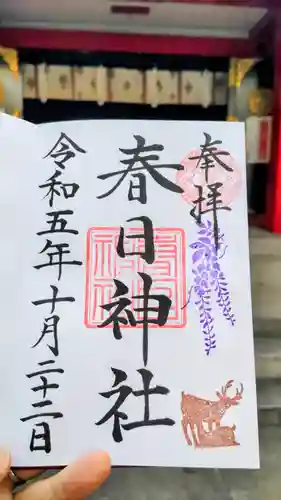 奉拝
春日神社
令和五年十月二十二日